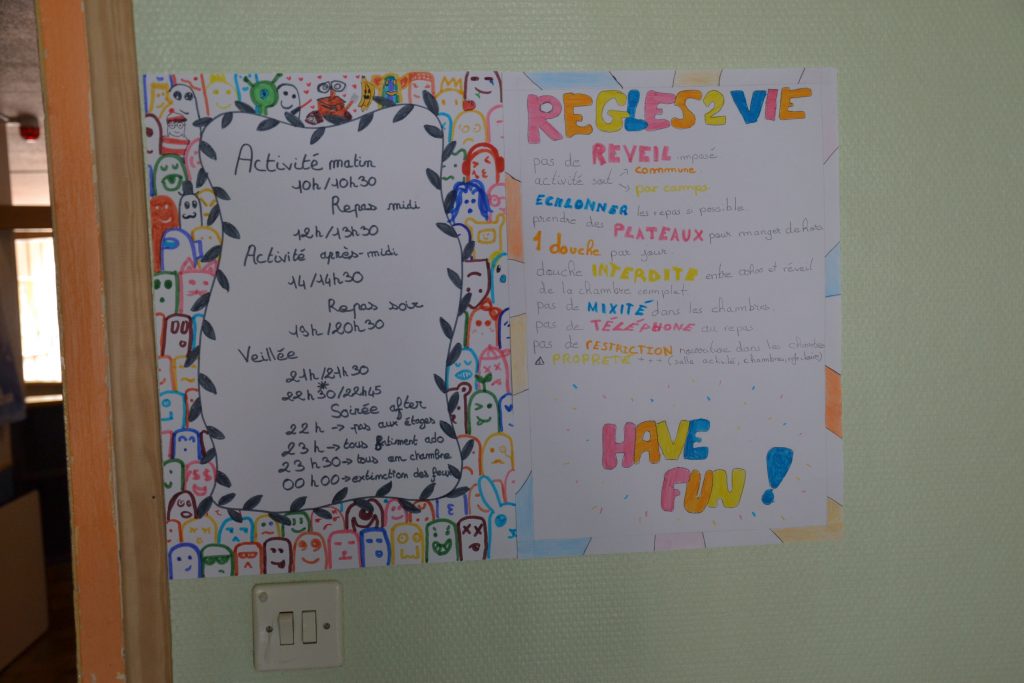 Activité matin
10h/10h30
Repas midi
12h/13h30
Activité après-midi
14/14h30
Repas soir
19h/20h30
Veillée
21h/21h30
*
22h30/22h45
Soirée after
22h → pas aux étages
23h → tous bâtiment ado
23h30 → tous en chambre
00h00 → extinction des feux
REGLES 2 VIE
pas de REVEIL imposé
activité soit → commune.
→ par camps.
ECHLONNER les repas si possible.
prendre des PLATEAUX pour manger dehors
1 douche par jour.
douche INTERDITE entre 00h00 et réveil
de la chambre complet.
pas de MIXITÉ dans les chambres.
pas de TÉLÉPHONE au repas
pas de RESTRICTION nourriture dans les chambres
⚠ PROPRETÉ +++ (salle activité, chambre, réfectoire)
HAVE
FUN !